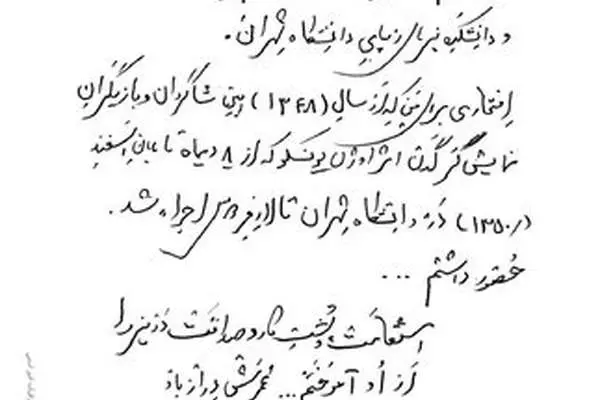 و دانشکده هنرهای زیبای دانشگاه تهران.
افتخاری برای من که از سال (۱۳۴۸) بین شاگردان و بازیگران
نمایش کرگدن اثر اوژن یونسکو که از ۸ دیماه تا پایان اسفند
(۱۳۵۰) در دانشگاه تهران تالار فردوسی اجراء شد.
حضور داشتم ...
استقامت، پشت کار و صداقت در زندگی را
از او آموختم... عمرش دراز باد